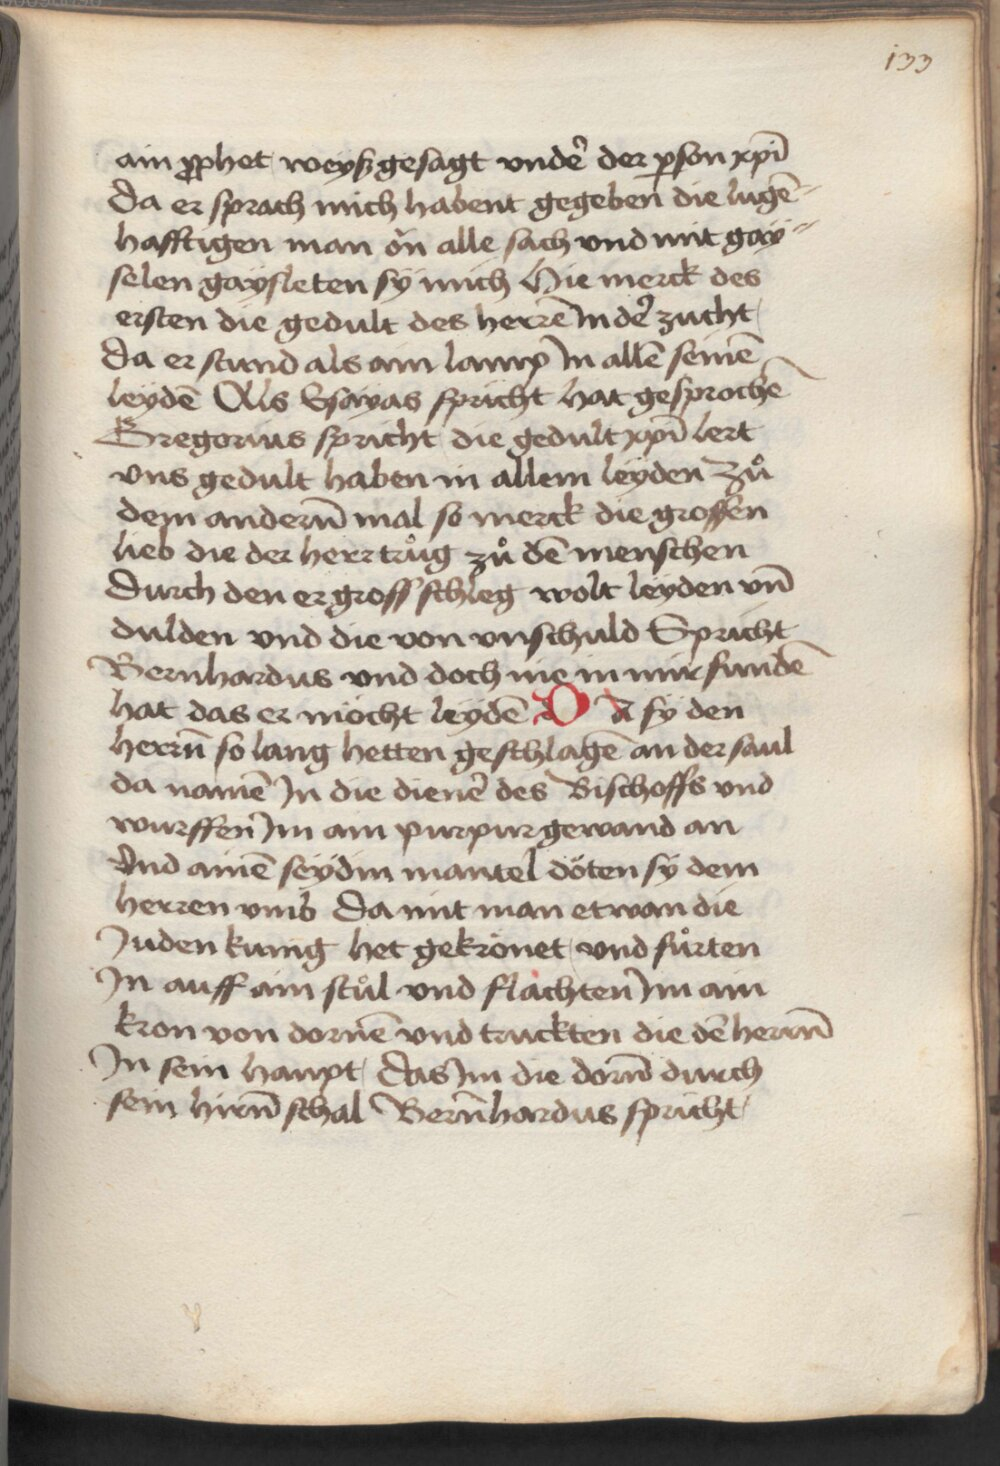 133
ain ꝓphet weyßgesagt vnde᷑ der ꝑson xp̄i
Da er sprach mich habent gegeben die lugē-
hafftigen man on̄ alle sach vnd mit gaÿ-
selen gaÿsleten sÿ mich Hie merck des
ersten die gedult des herrē In de᷑ zucht
Da er stund als ain lamp In allē seinē
leydē Als Esayas spricht hat gesprochē
Gregorius spricht die gedult xp̄i lert
vns gedult haben in allem leyden Zů
dem anderñ mal so merck die grossen
lieb die der herr trůg zů dē menschen
Durch den er gross schleg wolt leyden vñ
dulden vnd die von vnschuld Spricht
Bernhardus vnd doch nie in mir fundē
hat das er möcht leydē DA sÿ den
herrñ so lang hetten geschlagē an der saul
da namē In die diene᷑ des Bischoffs vnd
wurffen Im ain purpur gewand an
Vnd ainē seydin mantel döten sÿ dem
herren vmb Da mit man etwan die
Juden kunig het gekrönet vnd fůrten
In auff ain stůl vnd flachten Im ain
kron von dornē vnd truckten die dē herrñ
In sein haupt das Im die dorñ durch
sein hirñ schal Berñhardus spricht